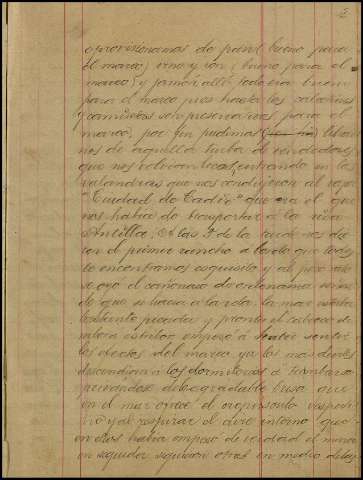 aprovisionamos de panal bueno para
el mareo, vino y ron (bueno para el
mareo) y jamón, allí todo era bueno
para el mareo pues hasta los calcetines
y camisetas son preservativos para el
mareo, por fin pudimos librar
nos de aquella turba de vendedores
que nos entrando en las
balandras que nos condujeron al vapor
"Ciudad de Cadiz" que era el que
nos habia de transportar a la rica
Antilla. A las 5 de la tarde nos die
ron el primer rancho a bordo que todos
le encontramos esquisito y al poco rato
se oyó el cañonazo de ordenanza señal
de que se hacia a la mar, la mar estaba
bastante picada y pronto el cabeceo de
empezó á hacer sentir
los efectos del mareo ya los mas
descendian á los dormitorios á tumbarse
privandose de la agradable brisa que
en el mar ofrece el crepúsculo vesperti
no y al respirar el aire interno que
en ellos habia empezó de verdad el mareo
en seguida siguieron otros en medio de las